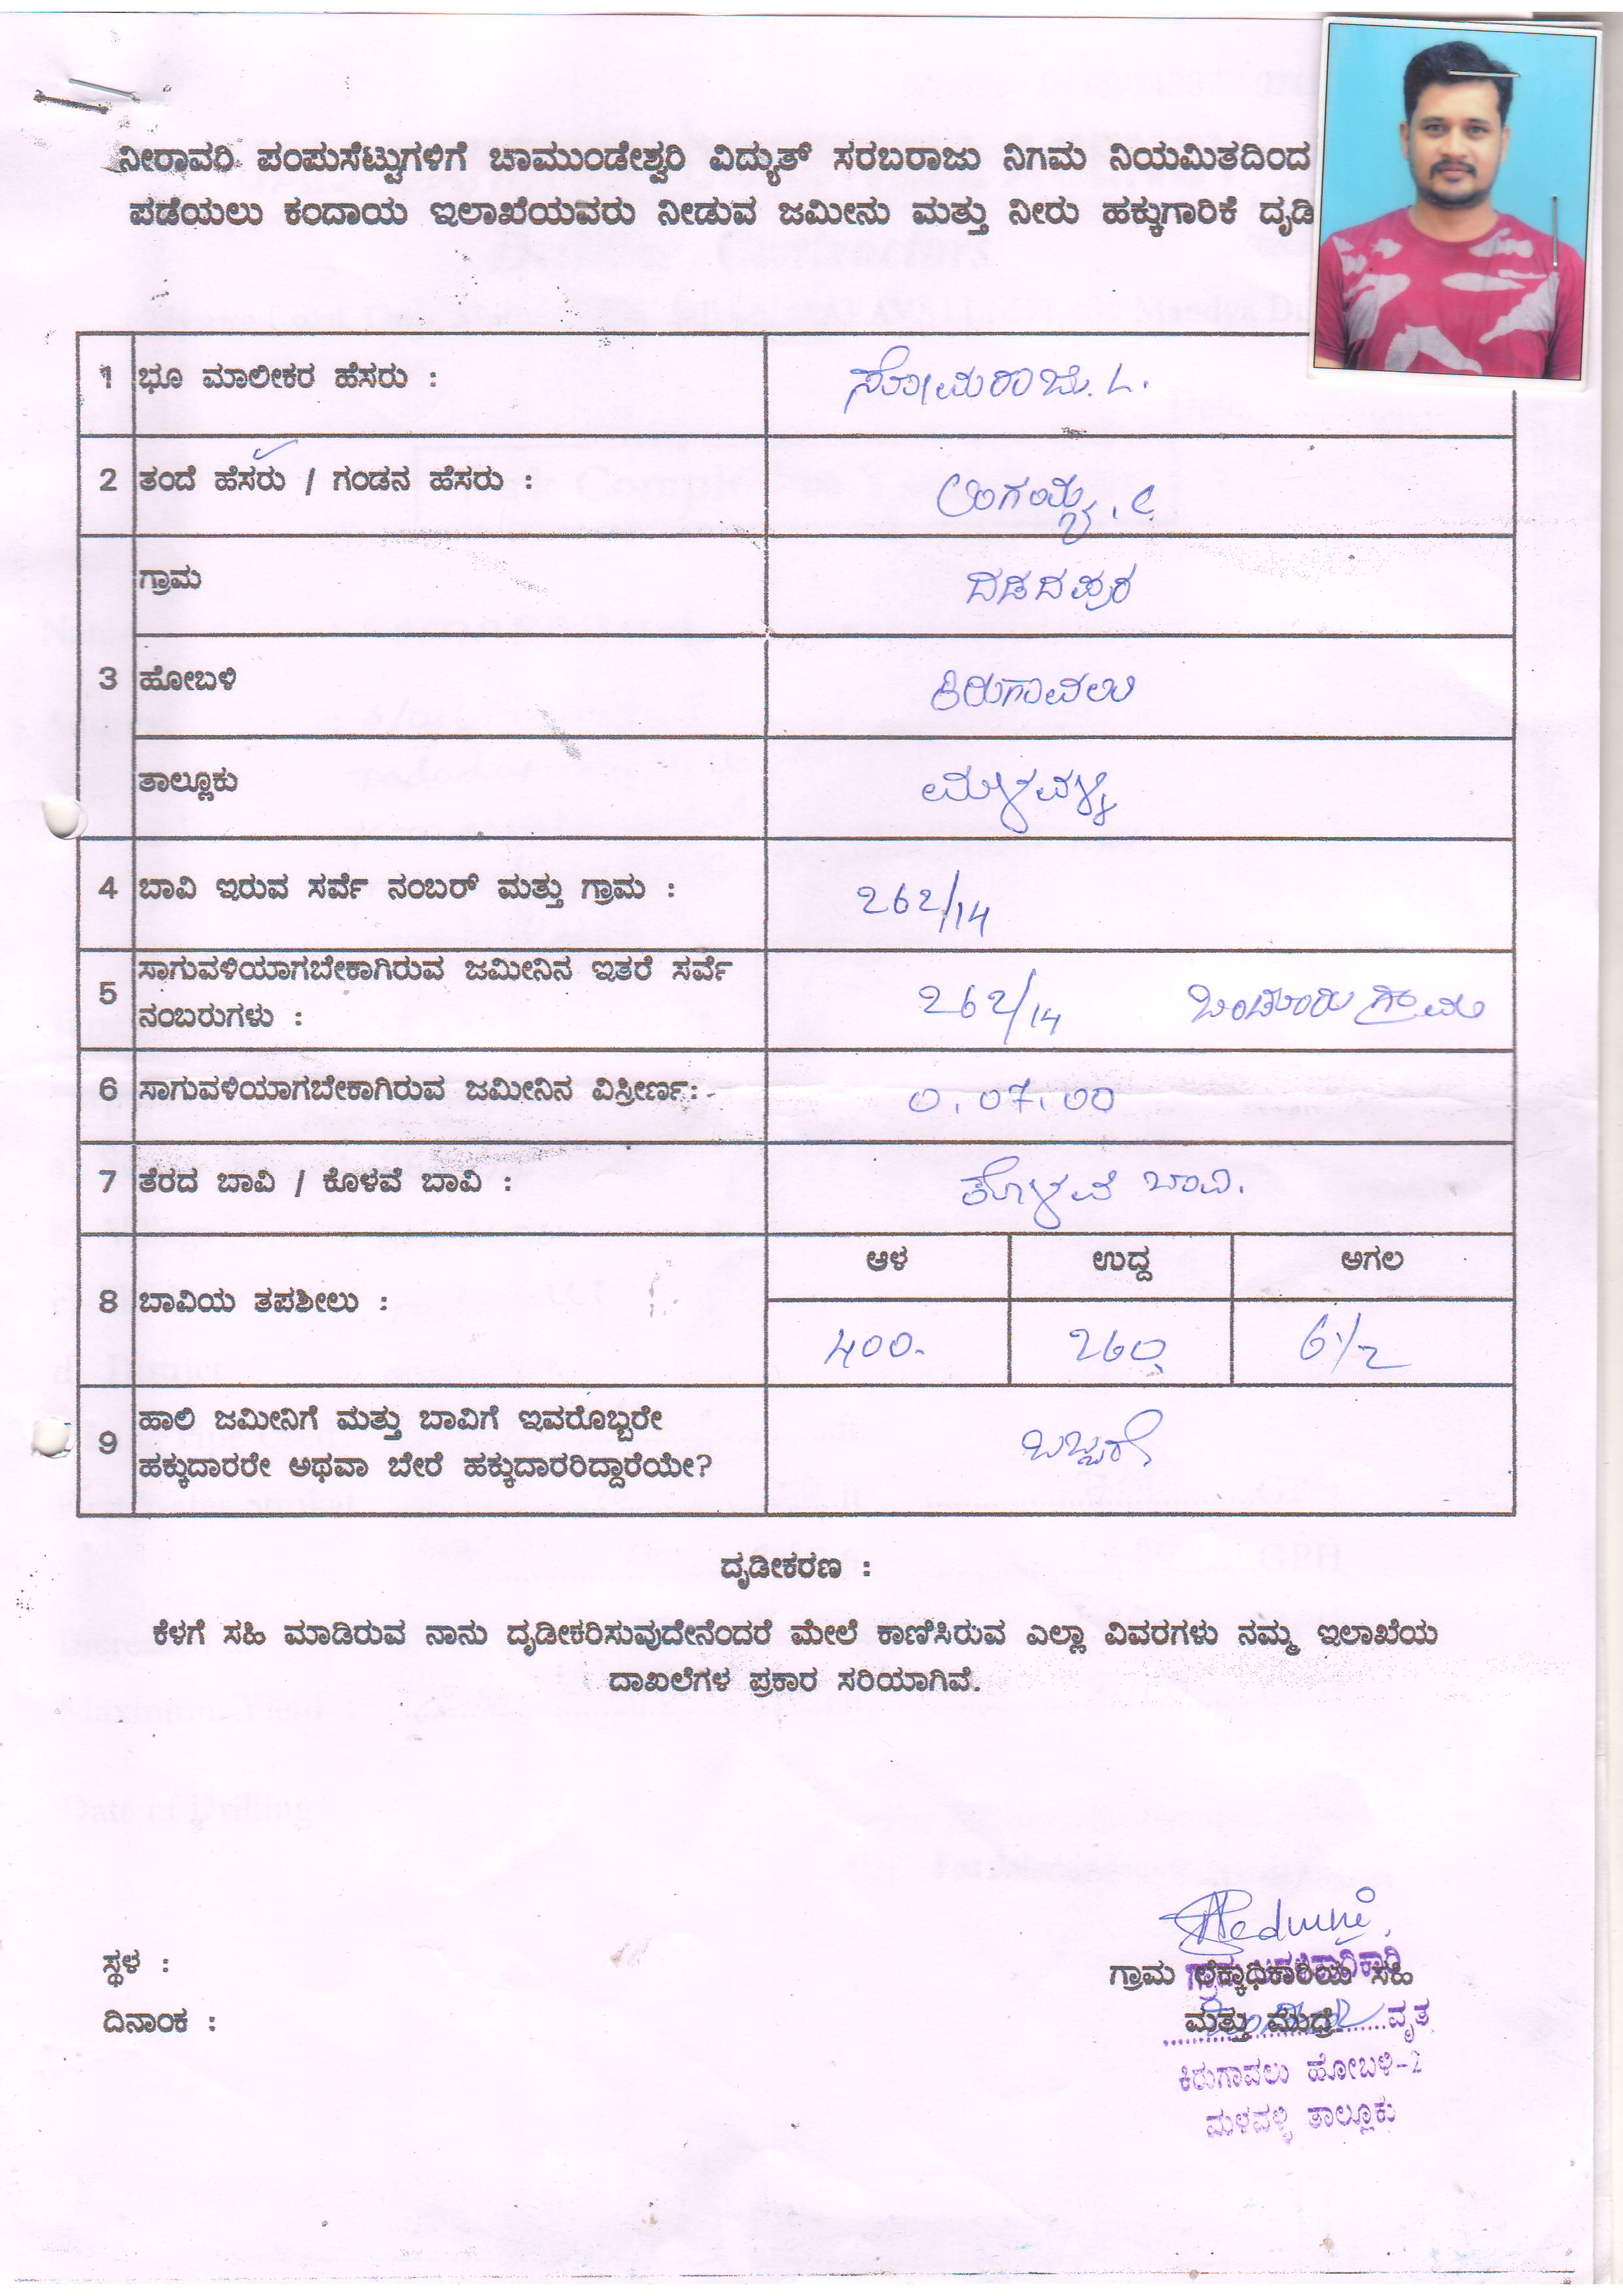 ನೀರಾವರಿ ಪಂಪುಸೆಟ್ಟುಗಳಿಗೆ ಚಾಮುಂಡೇಶ್ವರಿ ವಿದ್ಯುತ್ ಸರಬರಾಜು ನಿಗಮ ನಿಯಮಿತದಿಂದ
ಪಡೆಯಲು ಕಂದಾಯ ಇಲಾಖೆಯವರು ನೀಡುವ ಜಮೀನು ಮತ್ತು ನೀರು ಹಕ್ಕುಗಾರಿಕೆ ದೃಡಿ
1 ಭೂ ಮಾಲೀಕರ ಹೆಸರು : ಸೋಮರಾಜು. L.
2 ತಂದೆ ಹೆಸರು / ಗಂಡನ ಹೆಸರು :
ಗ್ರಾಮ ದಡದಪುರ
3 ಹೋಬಳಿ ಕಿರುಗಾವಲು
ತಾಲ್ಲೂಕು ಮಳವಳ್ಳಿ
4 ಬಾವಿ ಇರುವ ಸರ್ವೆ ನಂಬರ್ ಮತ್ತು ಗ್ರಾಮ : 262/14
5 ಸಾಗುವಳಿಯಾಗಬೇಕಾಗಿರುವ ಜಮೀನಿನ ಇತರೆ ಸರ್ವೆ
ನಂಬರುಗಳು : 262/14 ಗ್ರಾಮ
6 ಸಾಗುವಳಿಯಾಗಬೇಕಾಗಿರುವ ಜಮೀನಿನ ವಿಸ್ತೀರ್ಣ:- 0.07.00
7 ತೆರದ ಬಾವಿ / ಕೊಳವೆ ಬಾವಿ : ಕೊಳವೆ ಬಾವಿ.
ಆಳ ಉದ್ದ ಅಗಲ
8 ಬಾವಿಯ ತಪಶೀಲು : 400. 260 6 1/2
9 ಹಾಲಿ ಜಮೀನಿಗೆ ಮತ್ತು ಬಾವಿಗೆ ಇವರೊಬ್ಬರೇ
ಹಕ್ಕುದಾರರೇ ಅಥವಾ ಬೇರೆ ಹಕ್ಕುದಾರರಿದ್ದಾರೆಯೇ? ಒಬ್ಬರೆ
ದೃಡೀಕರಣ :
ಕೆಳಗೆ ಸಹಿ ಮಾಡಿರುವ ನಾನು ದೃಡೀಕರಿಸುವುದೇನೆಂದರೆ ಮೇಲೆ ಕಾಣಿಸಿರುವ ಎಲ್ಲಾ ವಿವರಗಳು ನಮ್ಮ ಇಲಾಖೆಯ
ದಾಖಲೆಗಳ ಪ್ರಕಾರ ಸರಿಯಾಗಿವೆ.
ಸ್ಥಳ :
ಗ್ರಾಮ ಲೆಕ್ಕಾಧಿಕಾರಿಯ ಸಹಿ
ದಿನಾಂಕ :
ಮತ್ತು ಮುದ್ರೆ
ವೃತ್ತ
ಕಿರುಗಾವಲು ಹೋಬಳಿ-2
ಮಳವಳ್ಳಿ ತಾಲ್ಲೂಕು